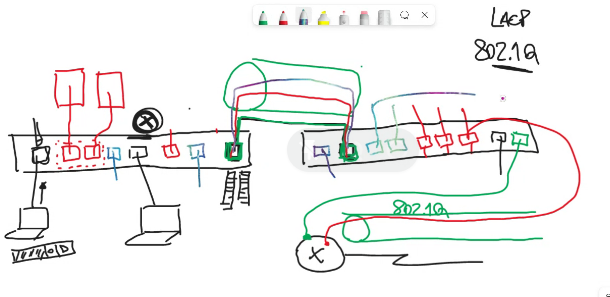 LACP
802.1Q
802.1Q
X